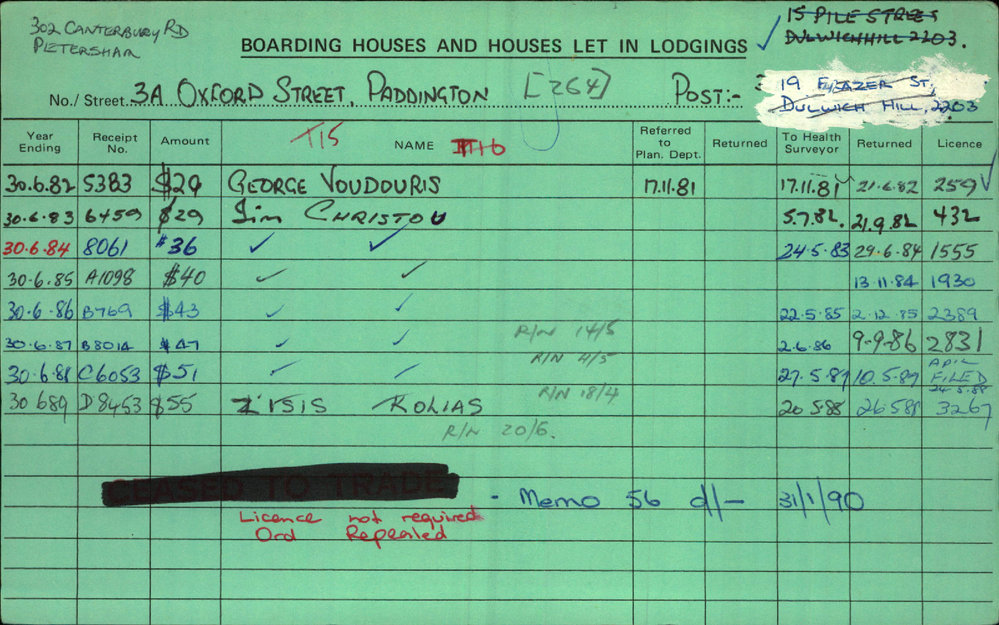 302 CANTERBURY RD
PETERSHAM
15 PILE STREET
DULWICH HILL 2203.
BOARDING HOUSES AND HOUSES LET IN LODGINGS
No./ Street. 3A OXFORD STREET, PADDINGTON [264] POST:-
19 FRAZER ST,
DULWICH HILL, 2203
Year Ending Receipt No. Amount T15 NAME Referred to Plan. Dept. Returned To Health Surveyor Returned Licence
30.6.82 5383 $29 GEORGE VOUDOURIS 17.11.81 17.11.81 21.6.82 259
30.6.83 6459 $29 Jim CHRISTOU 5.7.82. 21.9.82 432
30.6.84 8061 $36 ✓ ✓ 24.5.83 29.6.84 1555
30.6.85 A1098 $40 ✓ ✓ 13.11.84 1930
30.6.86 B769 $43 ✓ ✓ 22.5.85 2.12.85 2389
R/N 14/5
30.6.87 B8014 $47 ✓ ✓ 2.6.86 9-9-86 2831
R/N 4/5
30.6.88 C6053 $51 ✓ ✓ 27.5.87 10.5.89 APPL FILED 24.5.88
R/N 18/4
30 6 89 D8453 $55 ZISIS KOLIAS 20 5.88 26 5 88 3267
R/N 20/6.
CEASED TO TRADE - Memo 56 d/- 31/1/90
Licence not required
Ord Repealed